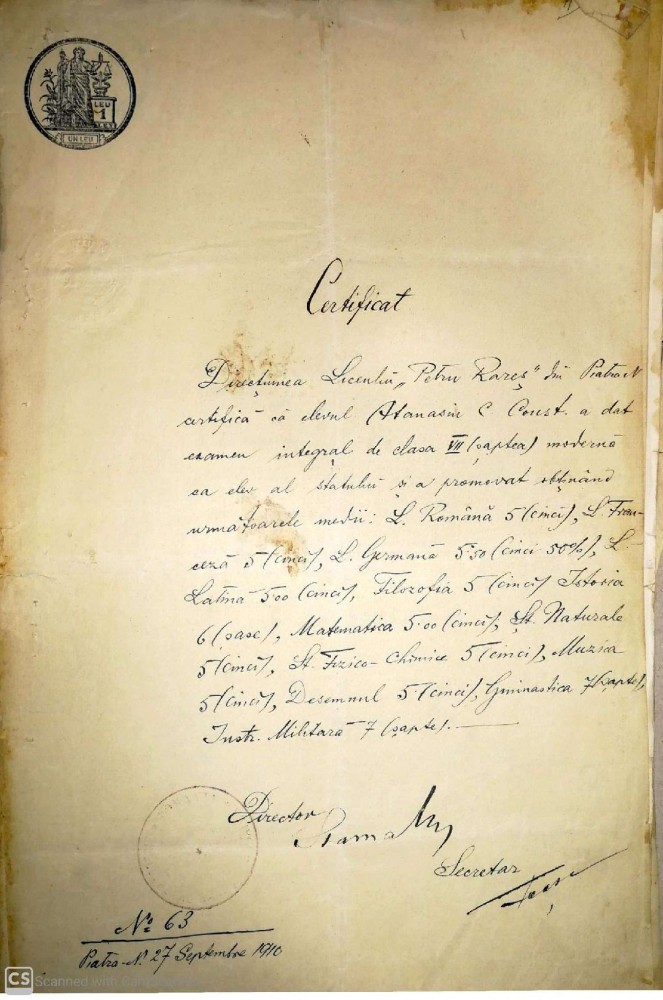 LEU
1
UN LEU
Certificat
Direcțiunea Liceului „Petru Rareș" din Piatra-N
certifică că elevul Atanasiu C Const. a dat
examen integral de clasa VII (șaptea) modernă
ca elev al statului și a promovat obținând
următoarele medii: L. Română 5 (cinci), L. Fran-
ceză 5 (cinci), L. Germană 5.50 (cinci 50%), L.
Latină 5.00 (cinci), Filozofia 5 (cinci) Istoria
6 (șase), Matematica 5.00 (cinci), Șt. Naturale
5 (cinci), Șt. Fizico-Chimice 5 (cinci), Muzica
5 (cinci), Desemnul 5 (cinci), Gimnastica 7 (șapte),
Instr. Militară 7 (șapte).
Director
Secretar
No 63
Piatra-N. 27 Septembre 1910
CS Scanned with CamScanner